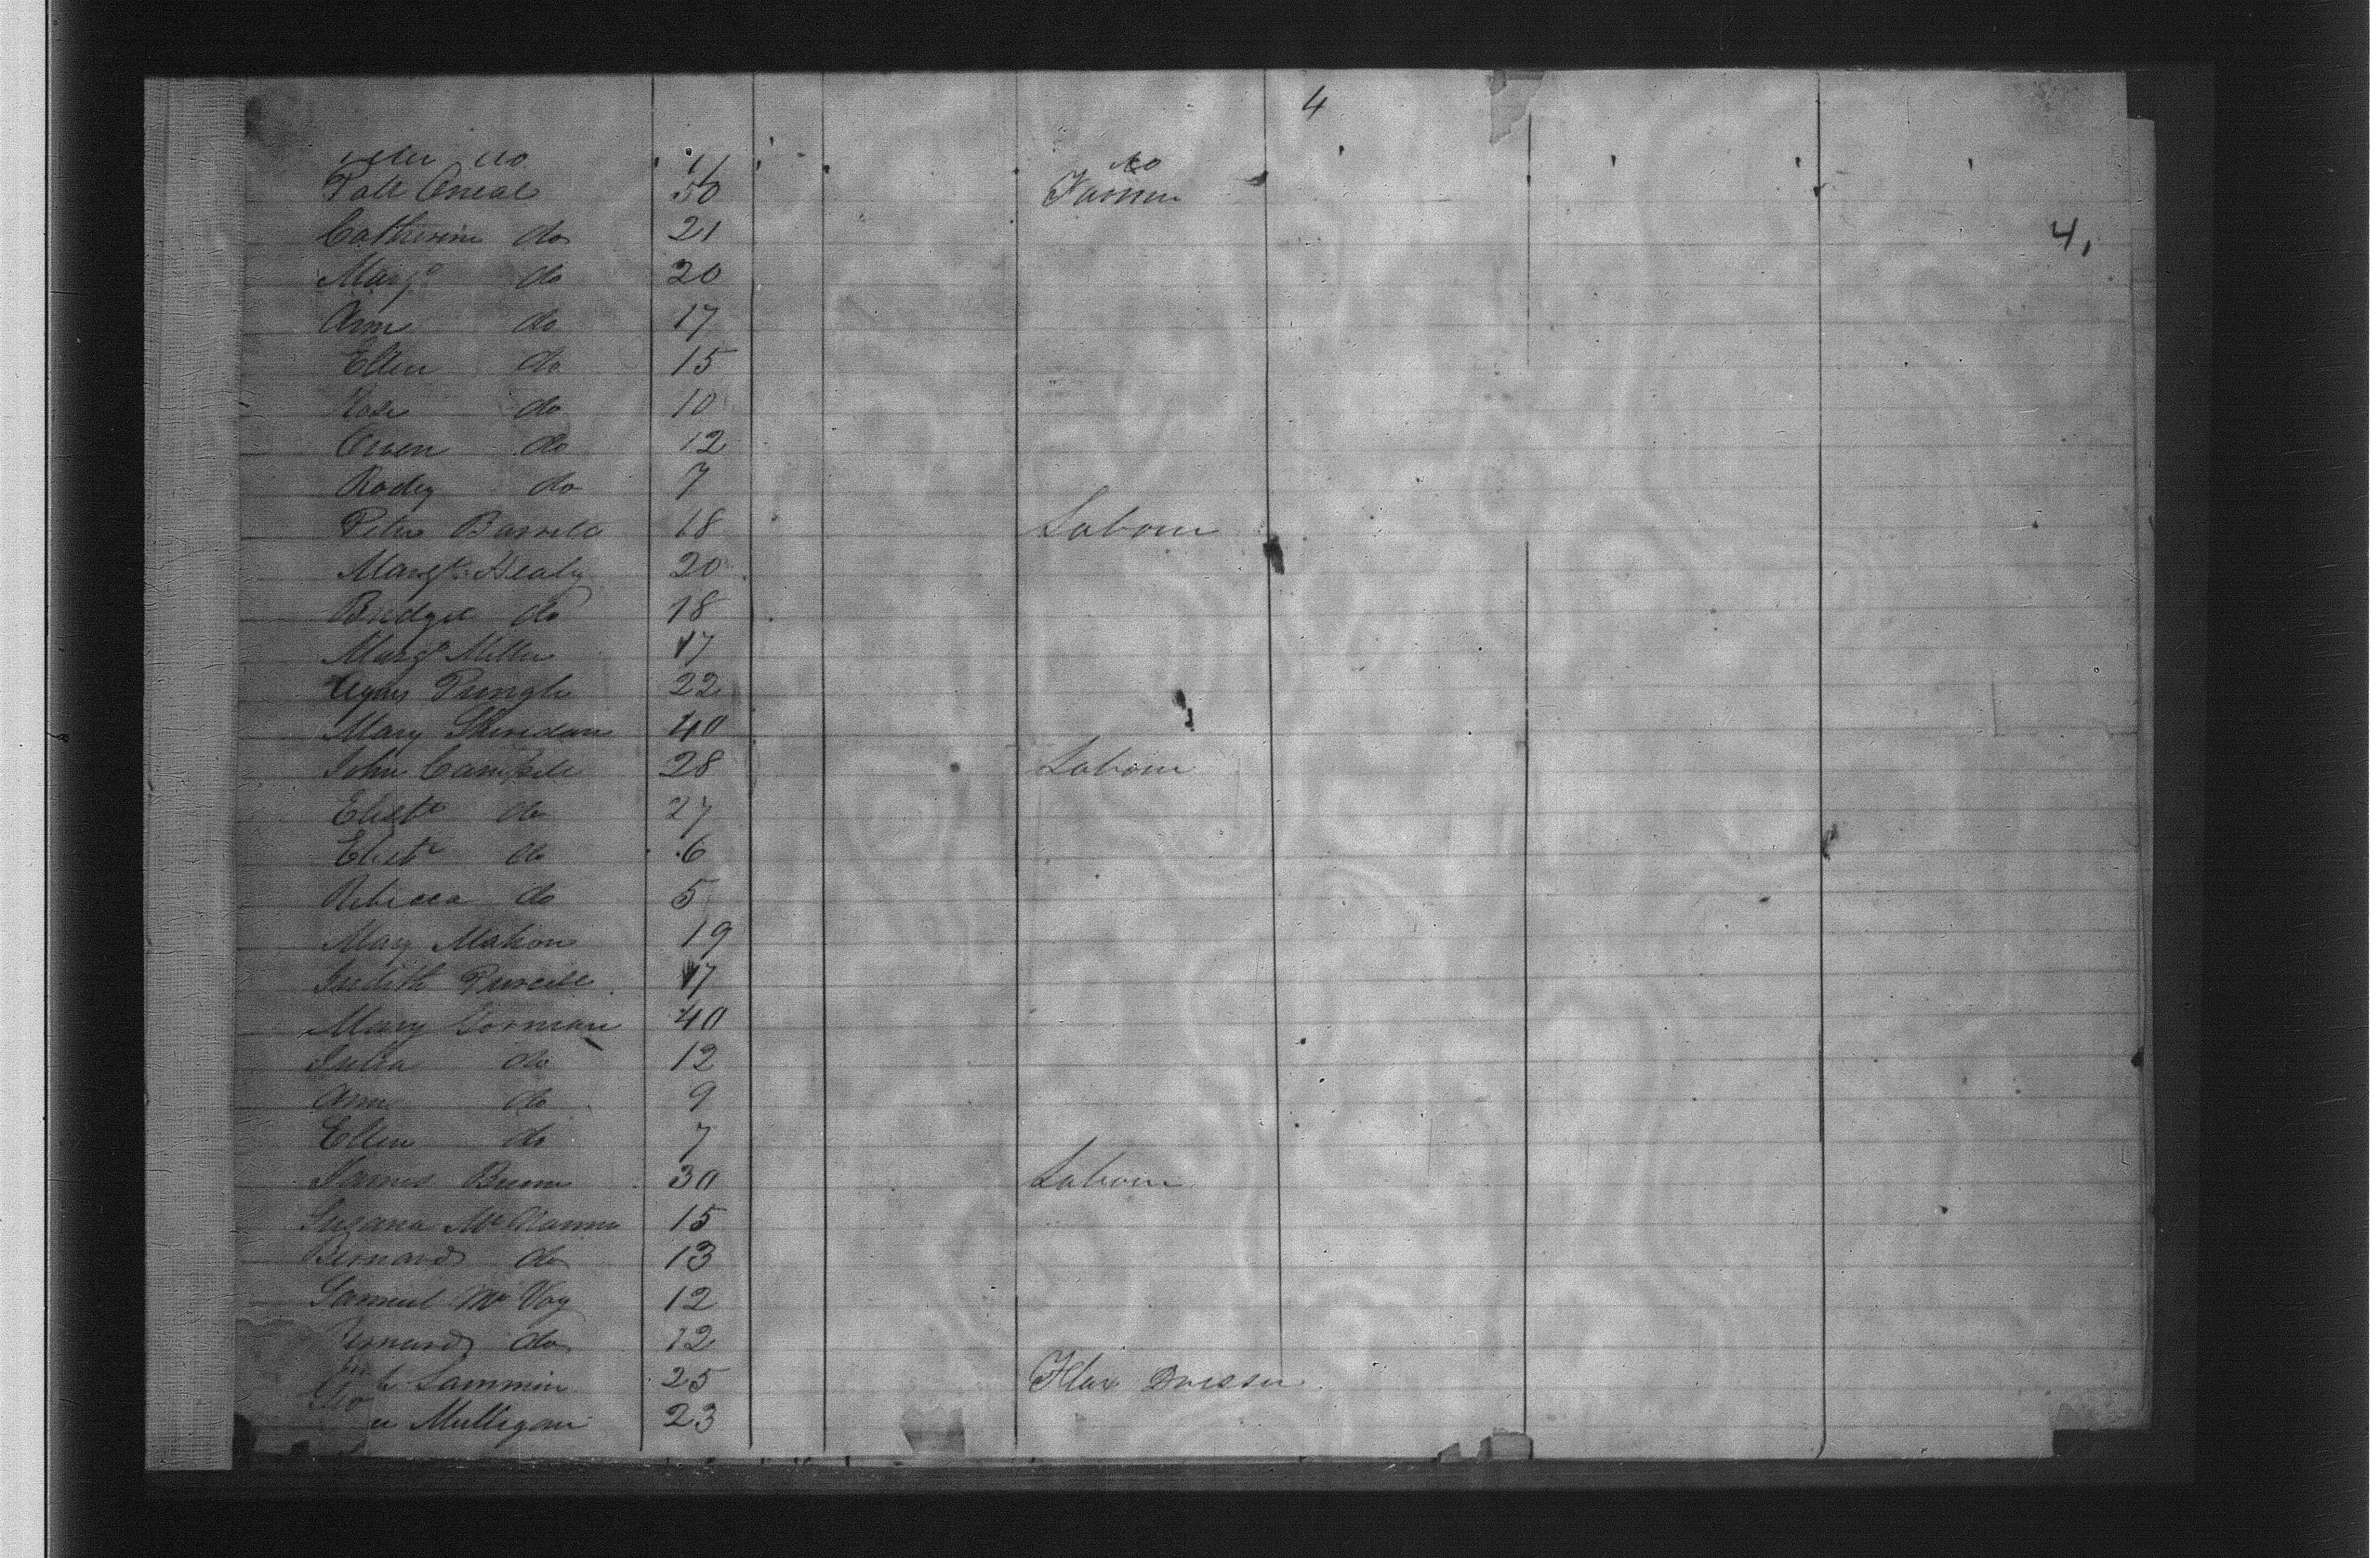 4
do 11 do
Patt Oneal 50 Farmer
Catherine do 21
4,
Margt do 20
Ann do 17
Ellen do 15
Rose do 10
Owen do 12
Rodey do 7
Peter 18 Labour
Margt Healy 20
Bridget do 18
Margt Miller 17
Agnes Pringle 22
Mary Sheridan 40
John Campbell 28 Labour
Elizth do 27
Elizth do 6
Rebecca do 5
Mary Mahon 19
Judith Purcell 17
Mary Gorman 40
Julia do 12
Ann do 9
Ellen do 7
James 30 Labour
Suzana 15
Bernard do 13
Samuel Mc Voy 12
Bernard do 12
Lammin 25 Flax Dresser
Mulligan 23